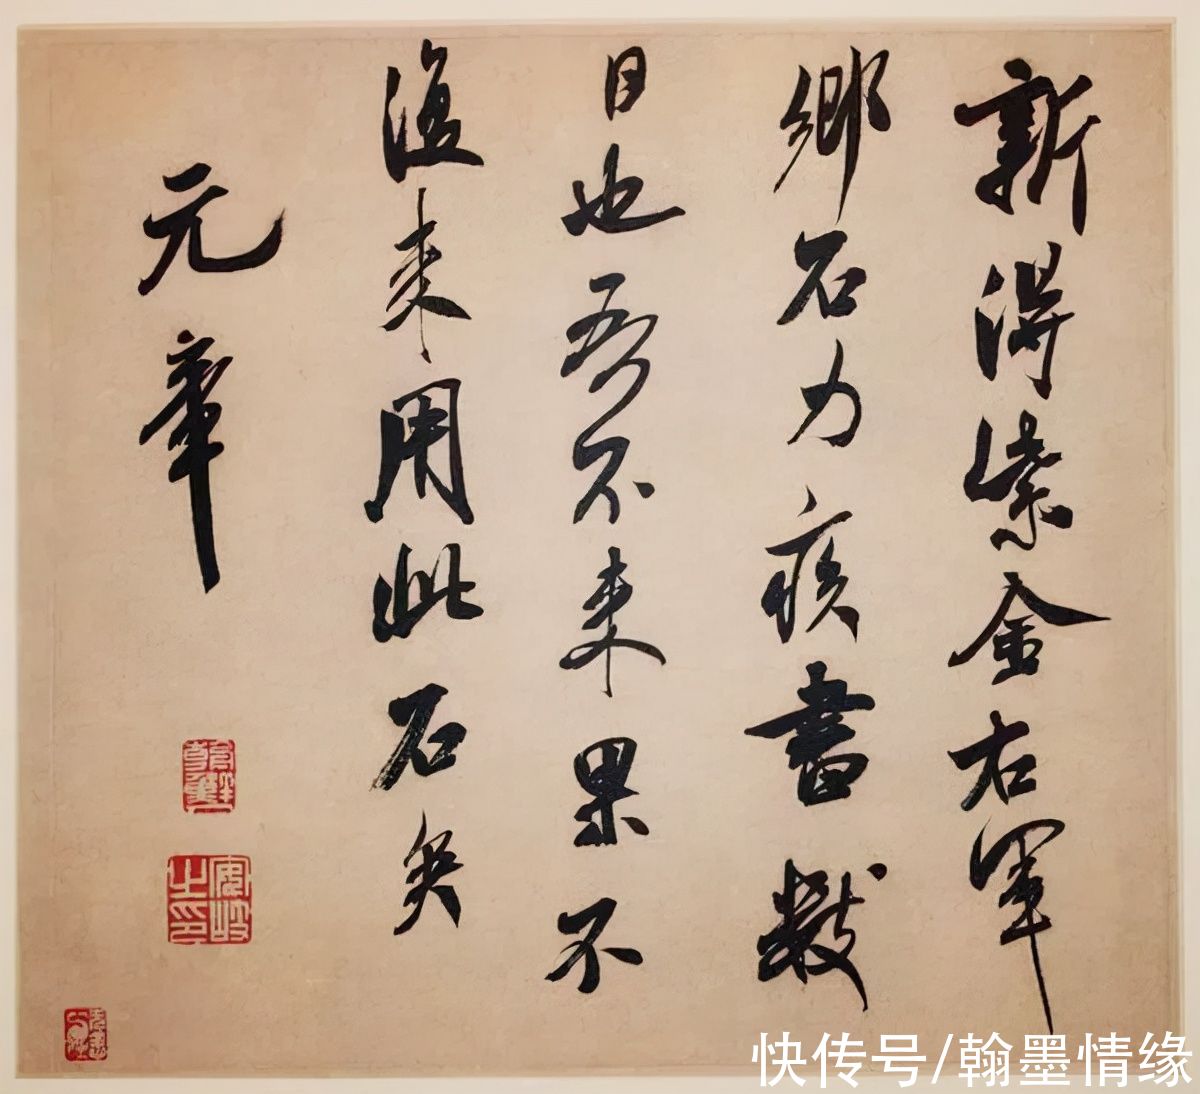 新得紫金右軍
鄉石力疾書數
日也吾不来果不
復来用此石矣
元章
安岐之印
快传号/翰墨情缘